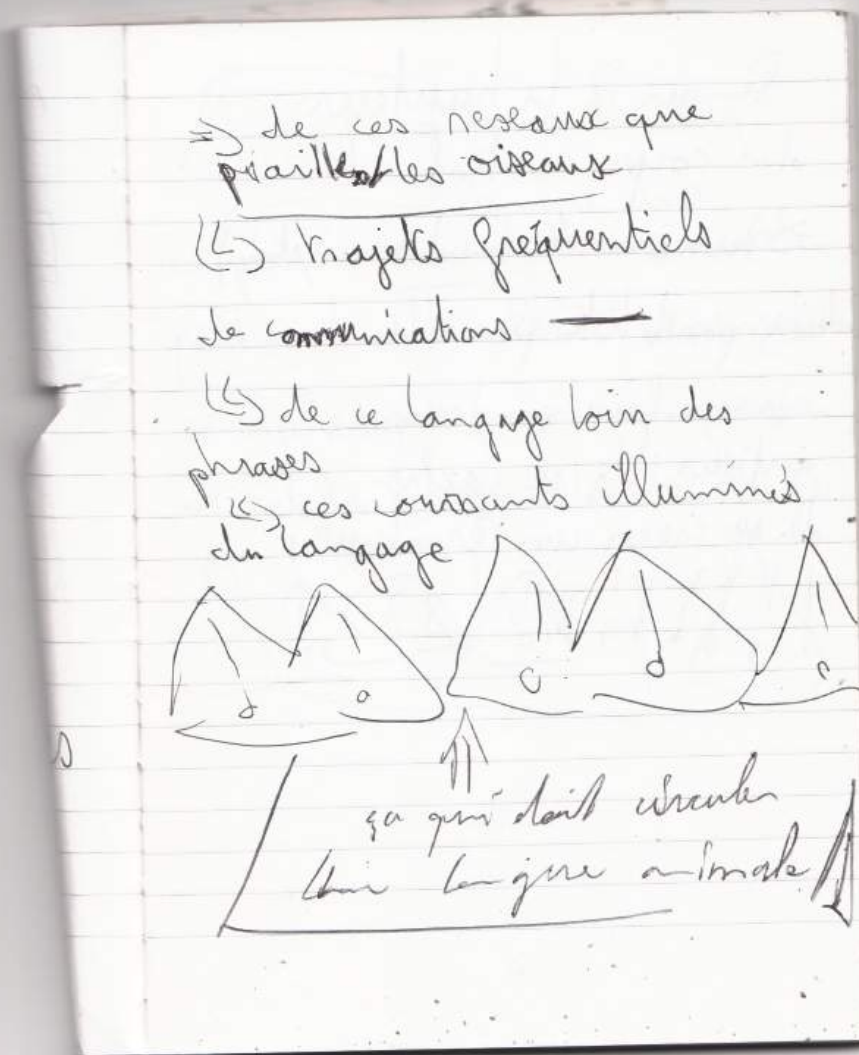 => de ces reseaux que
piaillent les oiseaux
↳ trajets fréquentiels
de communications —
↳ de ce langage loin des
phrases
↳ ces courants illuminés
du langage
ça qui doit circuler
Une langue animale